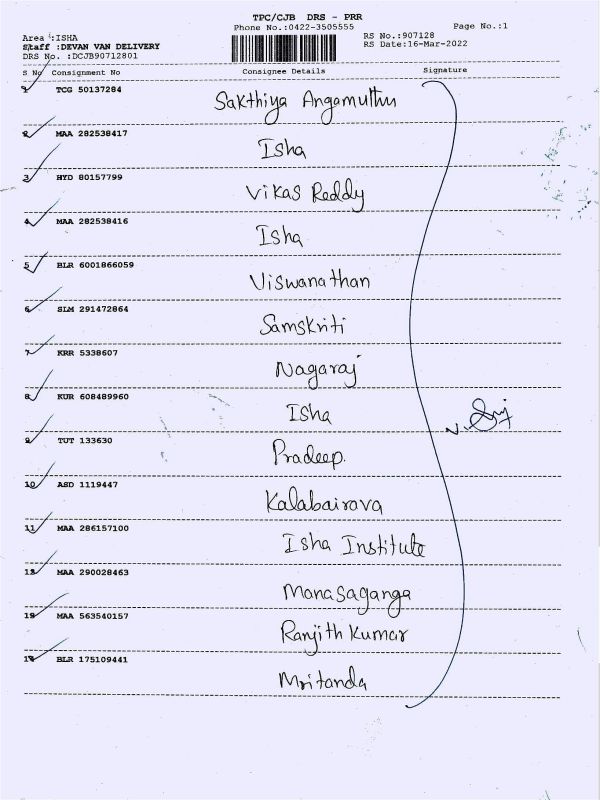 TPC/CJB DRS - PRR
Phone No.:0422-3505555
Page No.:1
Area :ISHA
RS No.:907128
Staff :DEVAN VAN DELIVERY
RS Date:16-Mar-2022
DRS No. :DCJB90712801
S No Consignment No Consignee Details Signature
1 TCG 50137284
Sakthiya Angamuthu
2 MAA 282538417
Isha
3 HYD 80157799
Vikas Reddy
4 MAA 282538416
Isha
5 BLR 6001866059
Viswanathan
6 SLM 291472864
Samskriti
7 KRR 5338607
Nagaraj
8 KUR 608489960
Isha
9 TUT 133630
Pradeep.
10 ASD 1119447
Kalabairava
11 MAA 286157100
Isha Institute
12 MAA 290028463
Manasaganga
13 MAA 563540157
Ranjith Kumar
14 BLR 175109441
Mritanda